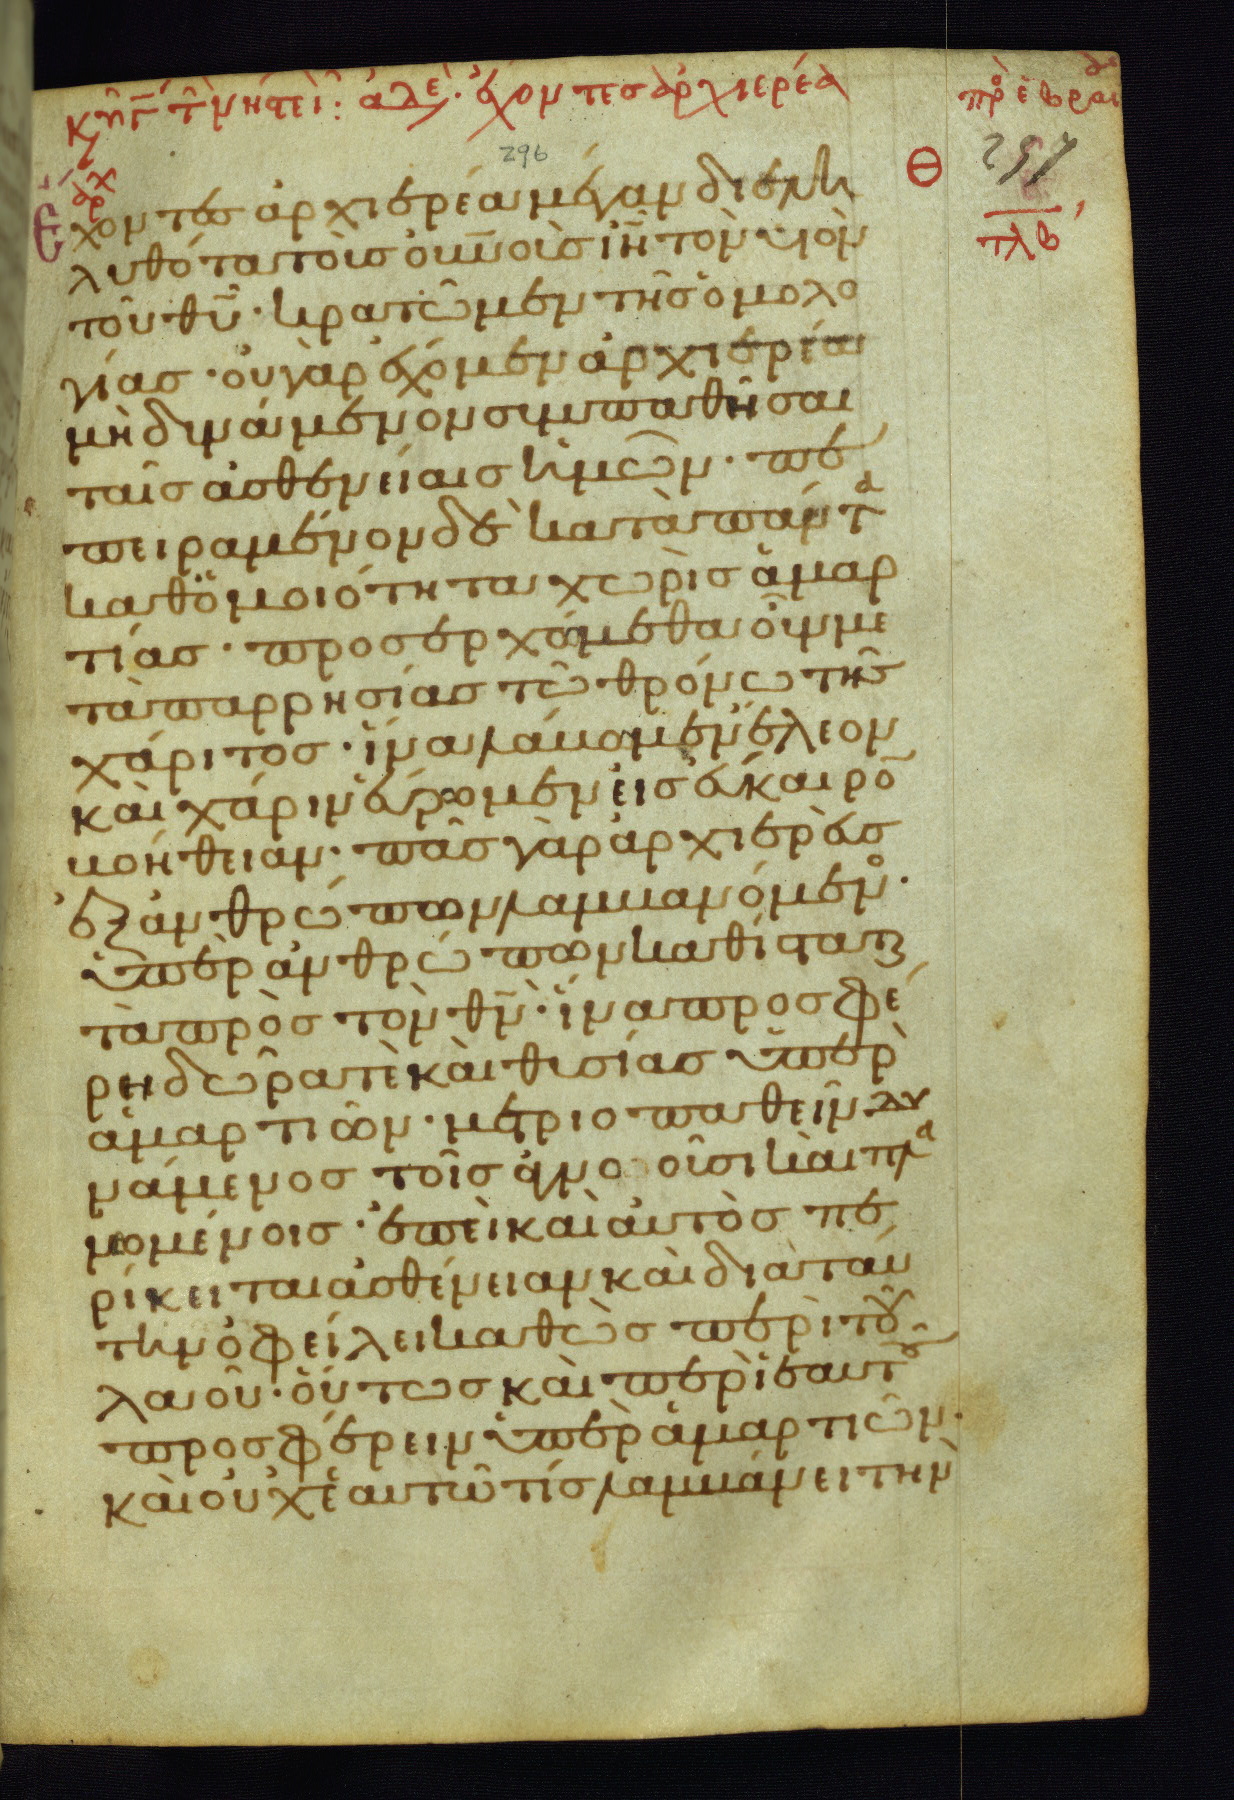 κυ γ τ νηστει: αδε. ἔχοντες ἀρχιερέα
πρ ἑβραι
296
Θ 297
τλβ
αρχ
Ἔχοντες ἀρχιερέα μέγαν διελη
λυθότα τοὺς οὐνοὺς ἰν τὸν υἱὸν
τοῦ θυ· κρατῶμεν τῆς ὁμολο
γίας· οὐ γὰρ ἔχομεν ἀρχιερέα
μὴ δυνάμενον συμπαθῆσαι
ταῖς ἀσθενείαις ἡμῶν· πε
πειραμένον δὲ κατὰ πάντα
καθ ὁμοιότητα χωρὶς ἁμαρ
τίας· προσερχόμεθα οὖν με
τὰ παρρησίας τῶ θρόνω τῆς
χάριτος· ἵνα λάβομεν ἔλεον
καὶ χάριν εὕρομεν εἰς εὔκαιρο
βοήθειαν· πᾶς γὰρ ἀρχιερεὺς
ἐξ ἀνθρώπων λαμβανόμενο·
ὑπὲρ ἀνθρώπων καθίσταται
τὰ πρὸς τὸν θν· ἵνα προσφέ
ρη δῶρα τὲ καὶ θυσίας ὑπὲρ
ἁμαρτιῶν· μετριοπαθεῖν δυ
νάμενος τοῖς ἀγνοοῦσι καὶ πλα
νομένοις· ἐπεὶ καὶ αὐτὸς πε
ρίκειται ἀσθένειαν καὶ διὰ ταύ
την ὀφείλει καθὼς περὶ τοῦ
λαοῦ· οὕτως καὶ περὶ ἑαυτοῦ
προσφέρειν ὑπὲρ ἁμαρτιῶν·
καὶ οὐχ ἑαυτῶ τίς λαμβάνει τὴν